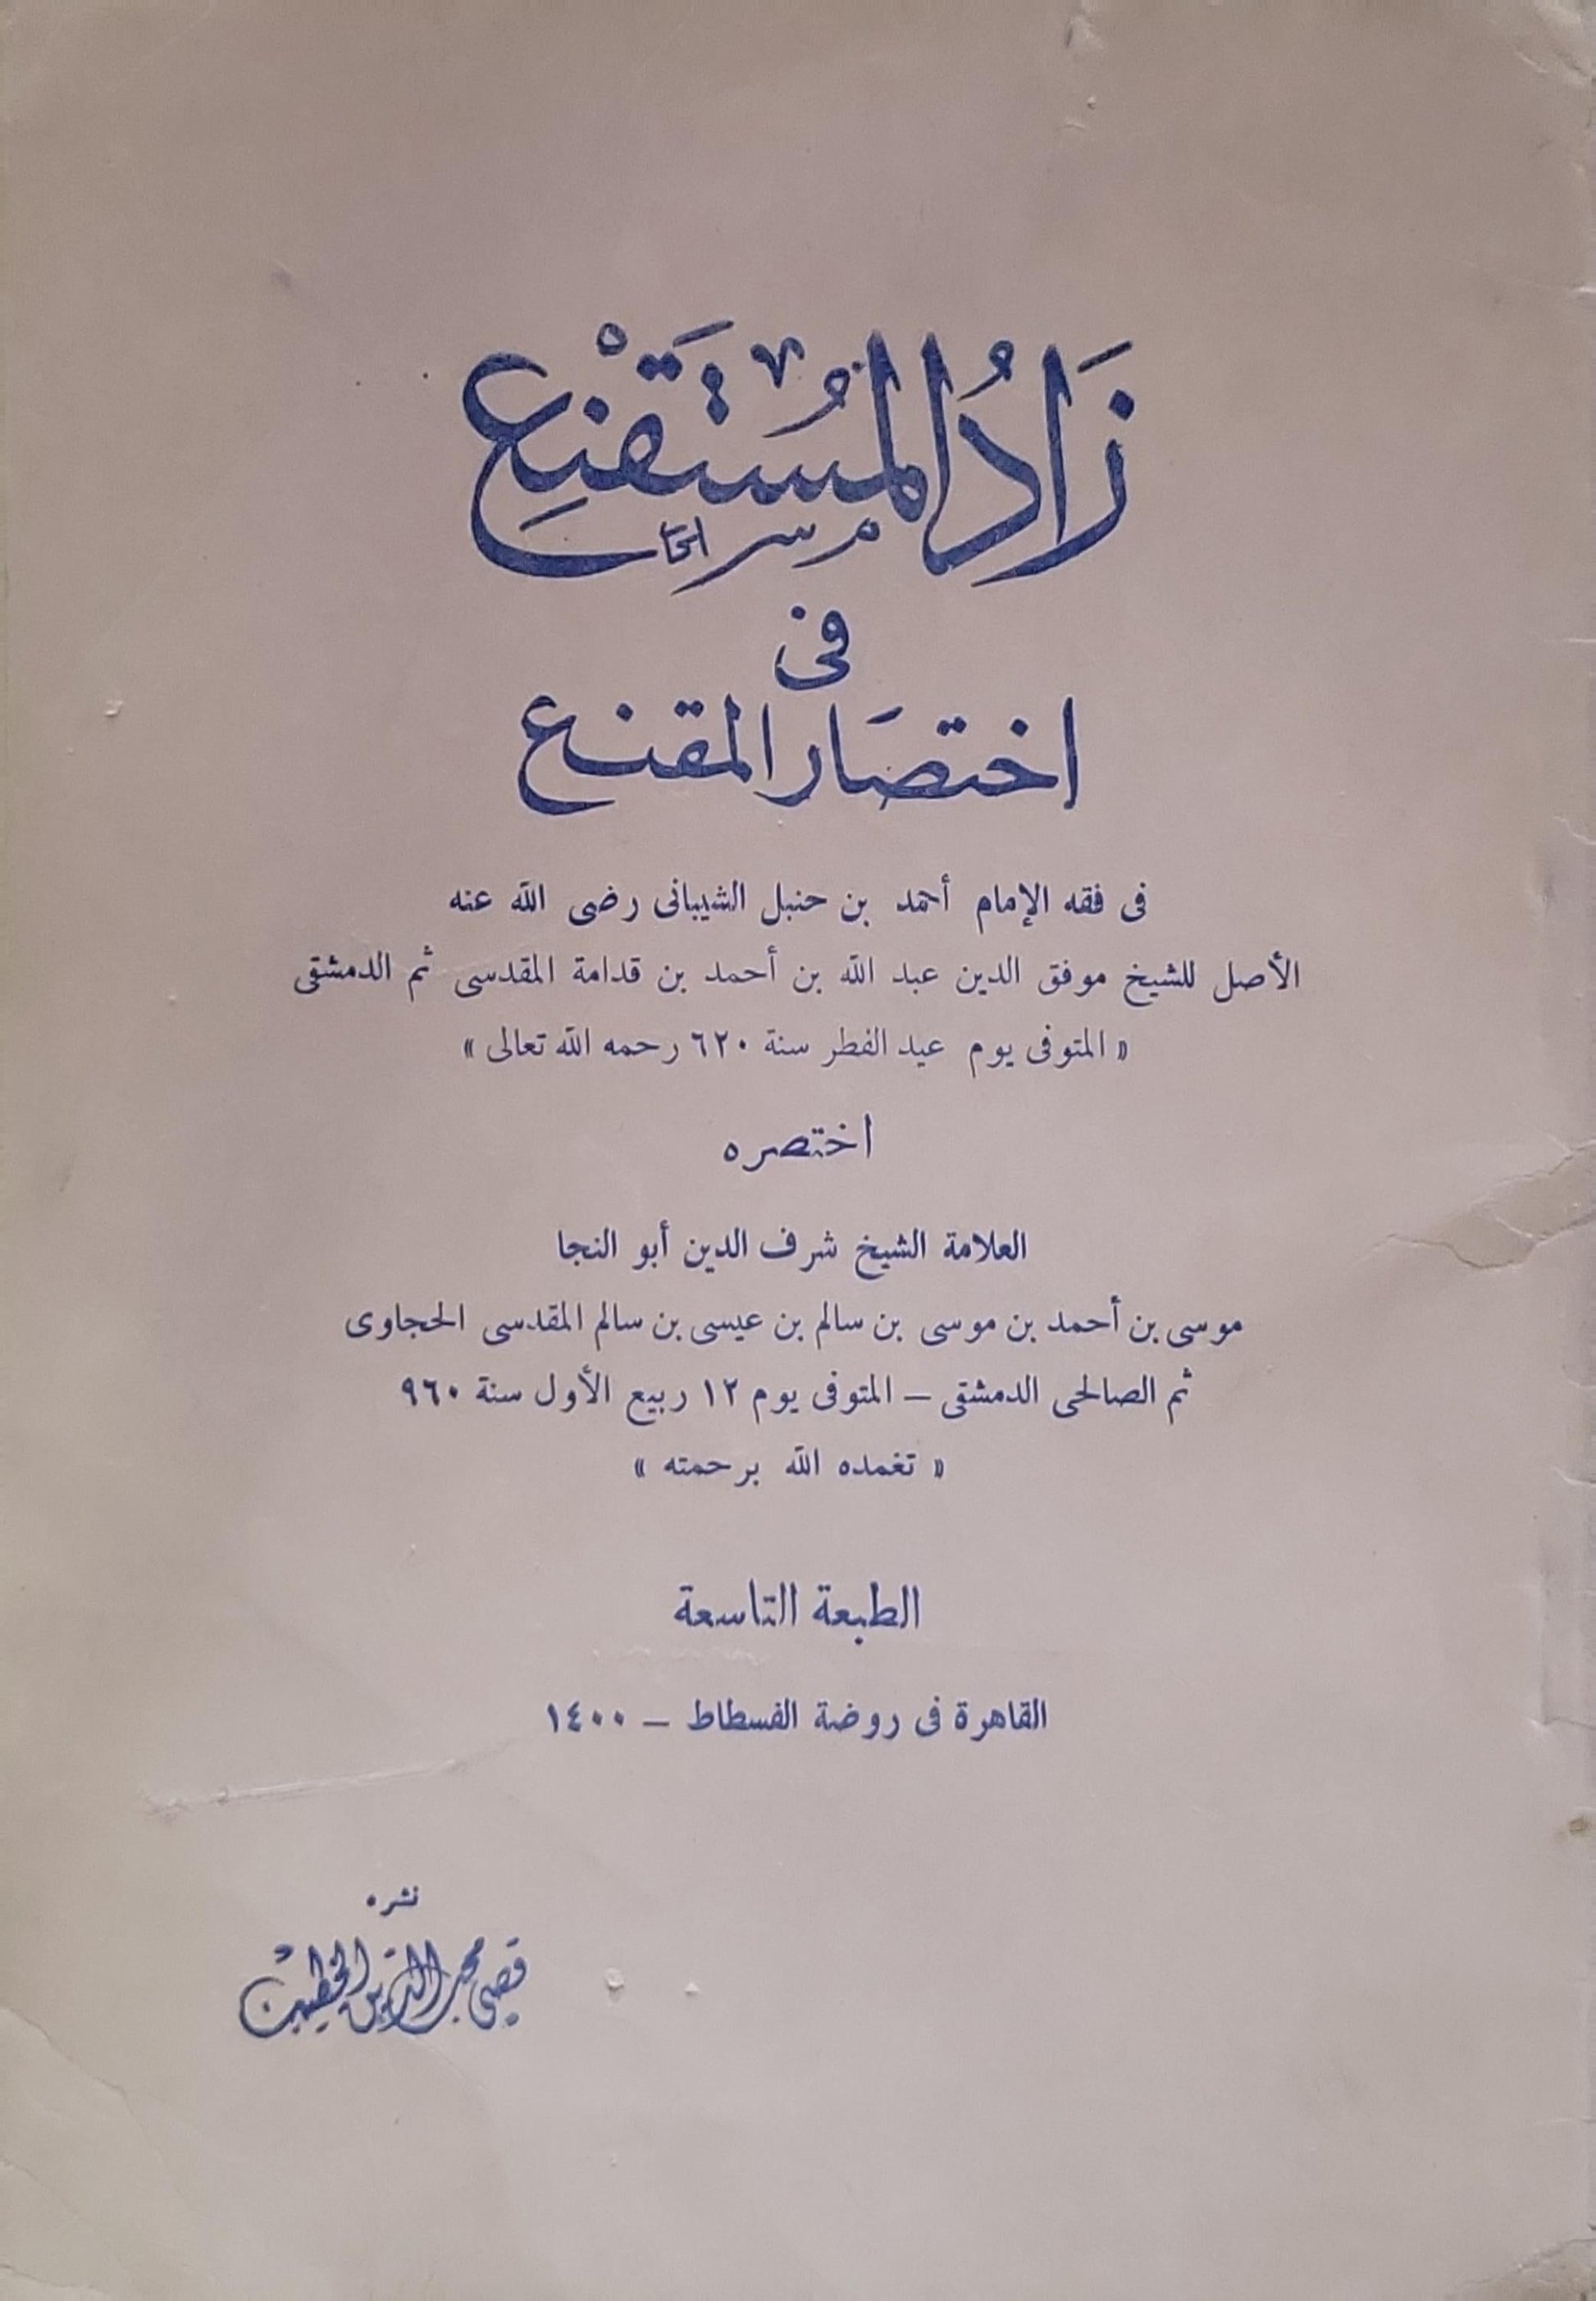 زَادُ المُسْتَقْنِع
فى
اختصَار المقنع
فى فقه الإمام أحمد بن حنبل الشيبانى رضى الله عنه
الأصل للشيخ موفق الدين عبد الله بن أحمد بن قدامة المقدسى ثم الدمشقى
« المتوفى يوم عيد الفطر سنة ٦٢٠ رحمه الله تعالى »
اختصره
العلامة الشيخ شرف الدين أبو النجا
موسى بن أحمد بن موسى بن سالم بن عيسى بن سالم المقدسى الحجاوى
ثم الصالحى الدمشقى – المتوفى يوم ١٢ ربيع الأول سنة ٩٦٠
« تغمده الله برحمته »
الطبعة التاسعة
القاهرة فى روضة الفسطاط – ١٤٠٠
نشره
قصى محب الدين الخطيب